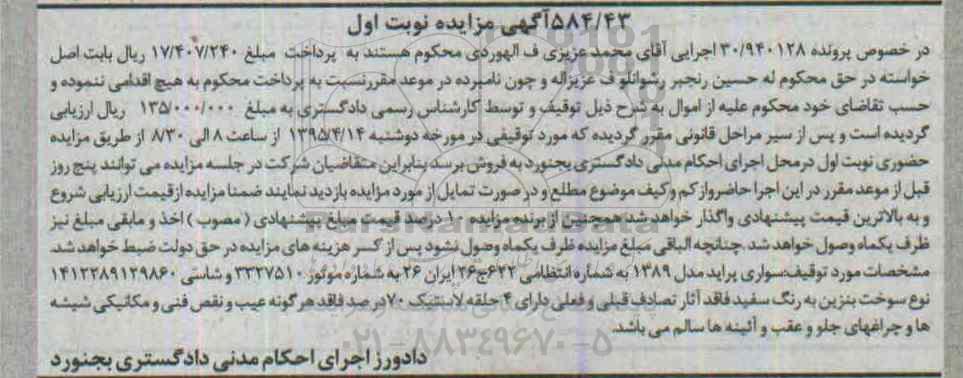 ۵۸۴/۴۳آگهی مزایده نوبت اول
در خصوص پرونده ۳۰/۹۴۰۱۲۸ اجرایی آقای محمد عزیزی ف الهوردی محکوم هستند به پرداخت مبلغ ۱۷/۴۰۷/۲۴۰ ریال بابت اصل
خواسته در حق محکوم له حسین رنجبر رشوانلو ف عزیزاله و چون نامبرده در موعد مقررنسبت به پرداخت محکوم به هیچ اقدامی ننموده و
حسب تقاضای خود محکوم علیه از اموال به شرح ذیل توقیف و توسط کارشناس رسمی دادگستری به مبلغ ۱۳۵/۰۰۰/۰۰۰ ریال ارزیابی
گردیده است و پس از سیر مراحل قانونی مقرر گردیده که مورد توقیفی در مورخه دوشنبه ۱۳۹۵/۴/۱۴ از ساعت ۸ الی ۸/۳۰ از طریق مزایده
حضوری نوبت اول درمحل اجرای احکام مدنی دادگستری بجنورد به فروش برسد بنابراین متقاضیان شرکت در جلسه مزایده می توانند پنج روز
قبل از موعد مقرر در این اجرا حاضرواز کم وکیف موضوع مطلع و در صورت تمایل از مورد مزایده بازدید نمایند ضمنا مزایده ازقیمت ارزیابی شروع
و به بالاترین قیمت پیشنهادی واگذار خواهد شد همچنین از برنده مزایده ۱۰ درصد قیمت مبلغ پیشنهادی (مصوب) اخذ و مابقی مبلغ نیز
ظرف یکماه وصول خواهد شد.چنانچه الباقی مبلغ مزایده ظرف یکماه وصول نشود پس از کسر هزینه های مزایده در حق دولت ضبط خواهد شد.
مشخصات مورد توقیف:سواری پراید مدل ۱۳۸۹ به شماره انتظامی ۶۲۲ج۲۶ ایران ۲۶ به شماره موتور ۳۳۲۷۵۱۰ و شاسی ۱۴۱۲۲۸۹۱۲۹۸۶۰
نوع سوخت بنزین به رنگ سفید فاقد آثار تصادف قبلی و فعلی دارای ۴ حلقه لاستیک ۷۰درصد فاقد هر گونه عیب و نقص فنی و مکانیکی شیشه
ها و چراغهای جلو و عقب و آئینه ها سالم می باشد.
دادورز اجرای احکام مدنی دادگستری بجنورد
ParsNamadData
۰۲۱-۸۸۳۴۹۶۷۰-۵